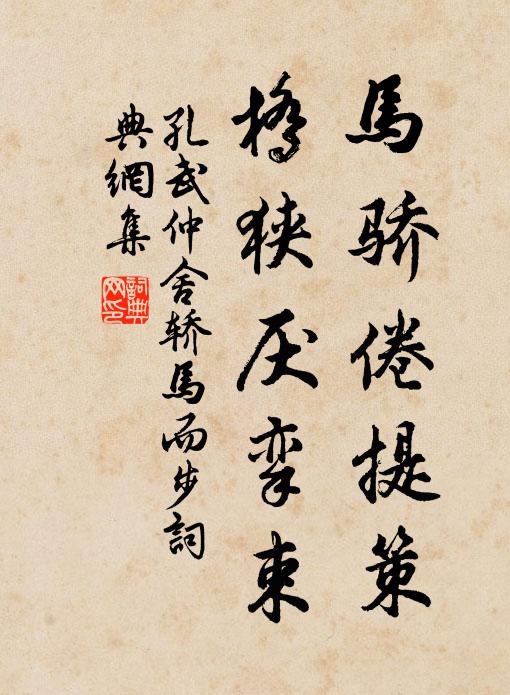 馬骄倦提策
橋狭厌挛束
孔武仲舍轿馬而步詞
典網集
詞典
网印